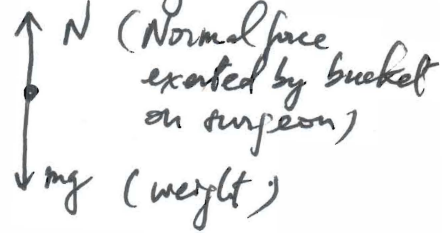 N (Normal force
exerted by bucket
on surgeon)
mg (weight)